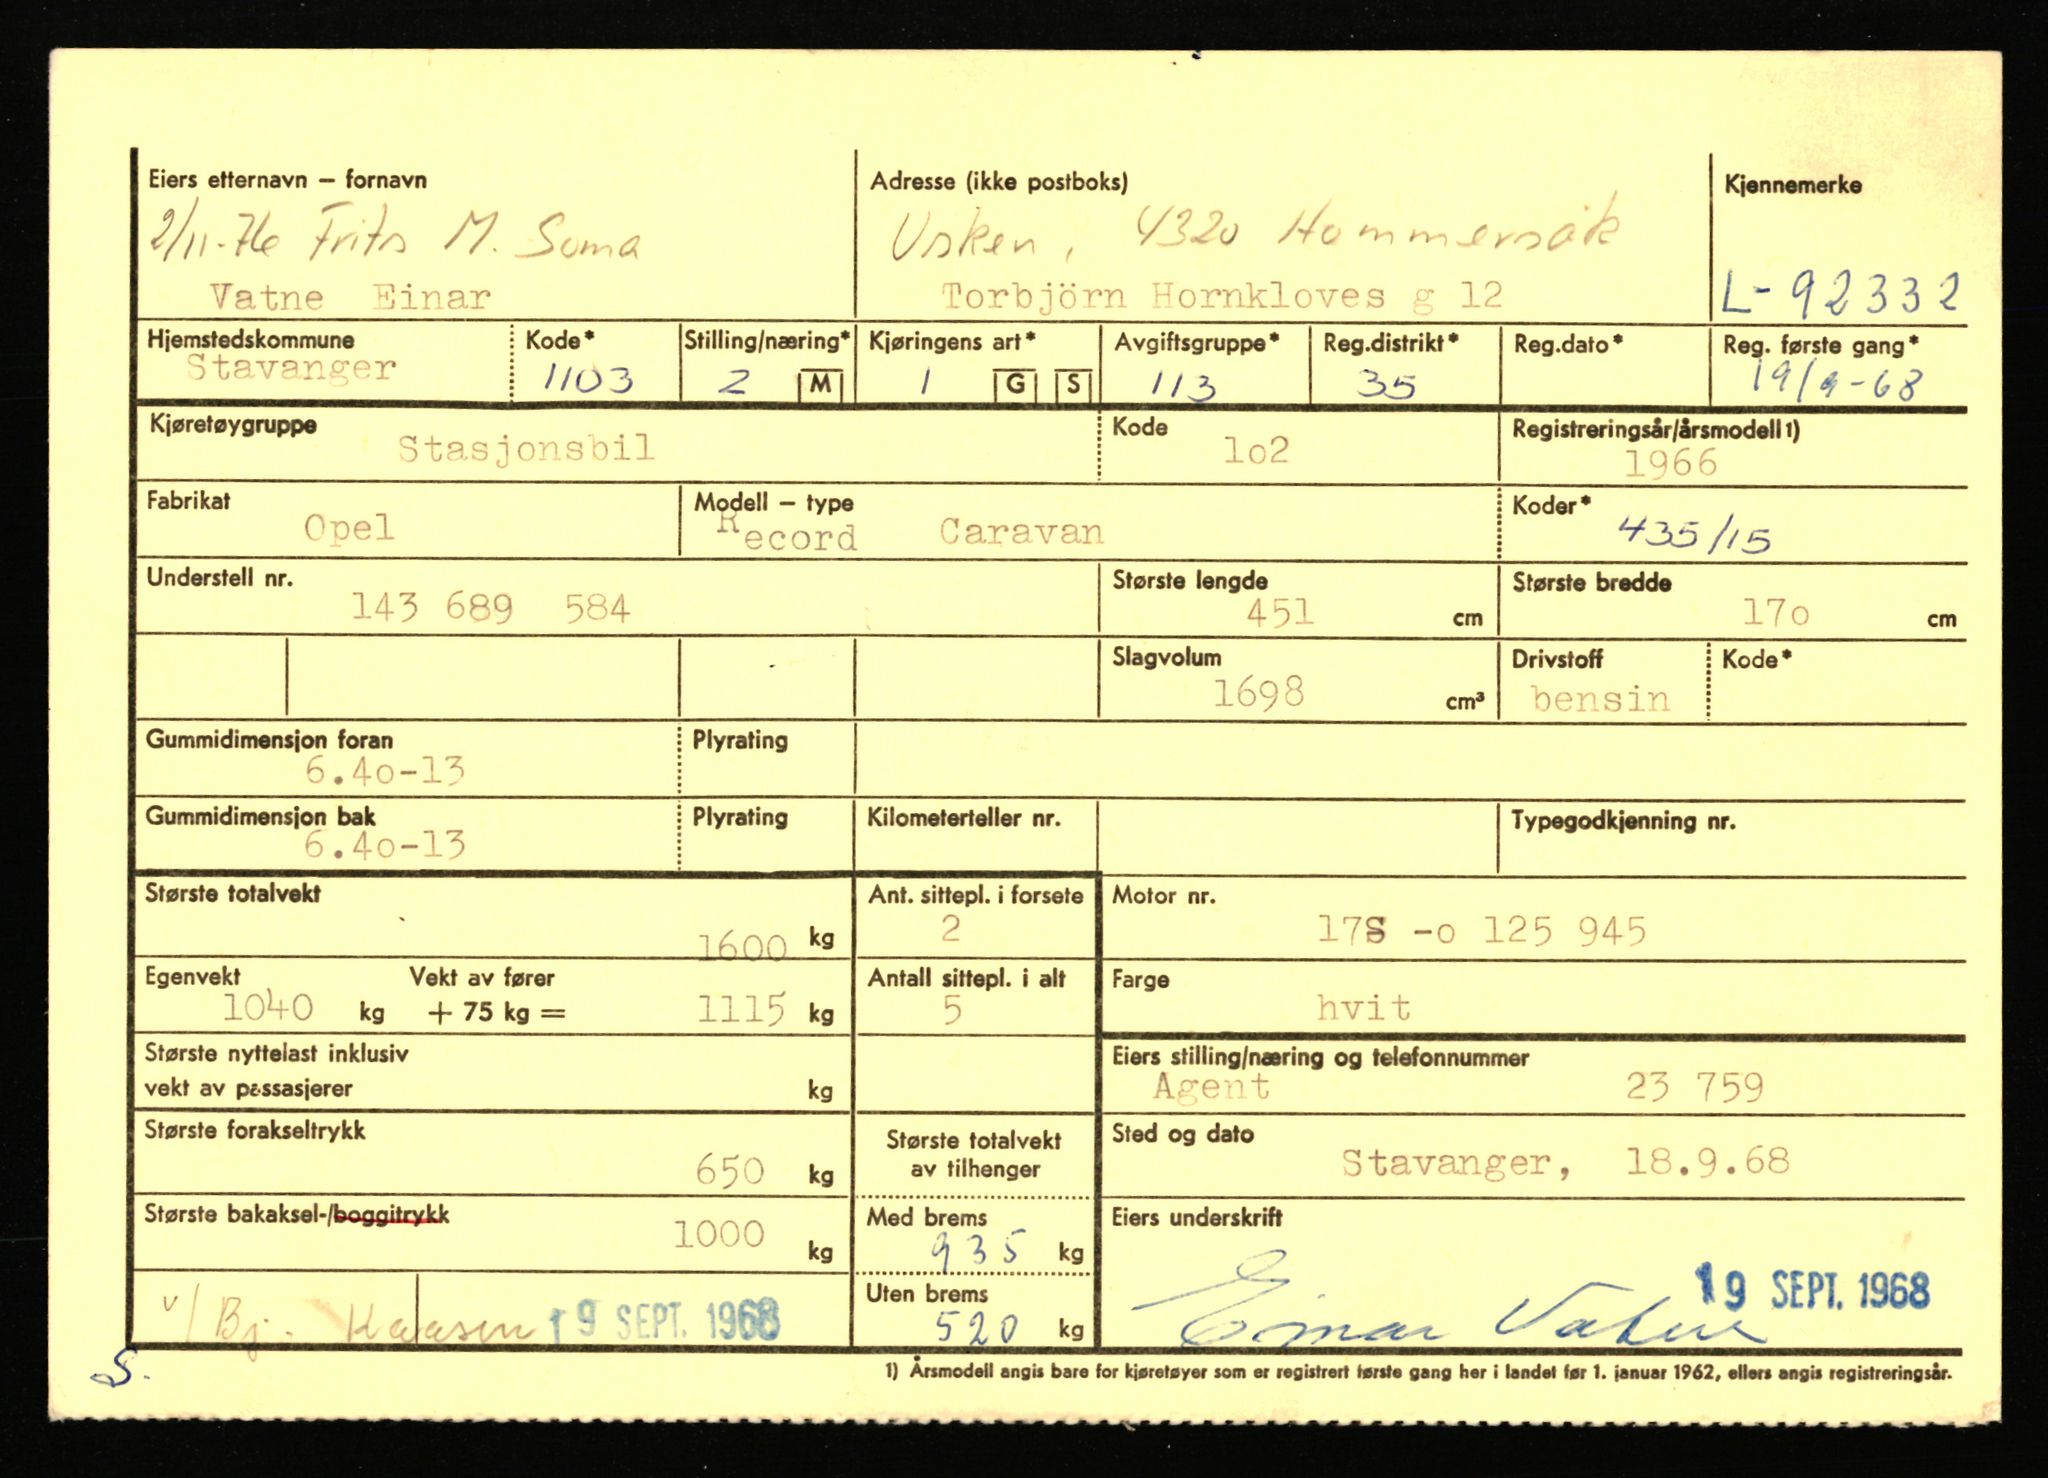 Eiers etternavn – fornavn Adresse (ikke postboks) Kjennemerke
2/11-76 Frits M. Soma Usken, 4320 Hommersåk
Vatne Einar Torbjörn Hornkloves g 12 L-92332
Hjemstedskommune Kode* Stilling/næring* Kjøringens art* Avgiftsgruppe* Reg.distrikt* Reg.dato* Reg. første gang*
Stavanger 1103 2 M 1 G S 113 35 19/9-68
Kjøretøygruppe Kode Registreringsår/årsmodell 1)
Stasjonsbil 1o2 1966
Fabrikat Modell – type Koder*
Opel Record Caravan 435/15
Understell nr. Største lengde Største bredde
143 689 584 451 cm 17o cm
Slagvolum Drivstoff Kode*
1698 cm³ bensin
Gummidimensjon foran Plyrating
6.4o-13
Gummidimensjon bak Plyrating Kilometerteller nr. Typegodkjenning nr.
6.4o-13
Største totalvekt Ant. sittepl. i forsete Motor nr.
1600 kg 2 17S -o 125 945
Egenvekt Vekt av fører Antall sittepl. i alt Farge
1040 kg + 75 kg = 1115 kg 5 hvit
Største nyttelast inklusiv Eiers stilling/næring og telefonnummer
vekt av passasjerer kg Agent 23 759
Største forakseltrykk Største totalvekt Sted og dato
av tilhenger
650 kg Stavanger, 18.9.68
Største bakaksel-/boggitrykk Med brems Eiers underskrift
1000 kg 935 kg
Uten brems
v/ Bj. Kaasen 19 SEPT. 1968 520 kg Einar Vatne 19 SEPT. 1968
S.
1) Årsmodell angis bare for kjøretøyer som er registrert første gang her i landet før 1. januar 1962, ellers angis registreringsår.